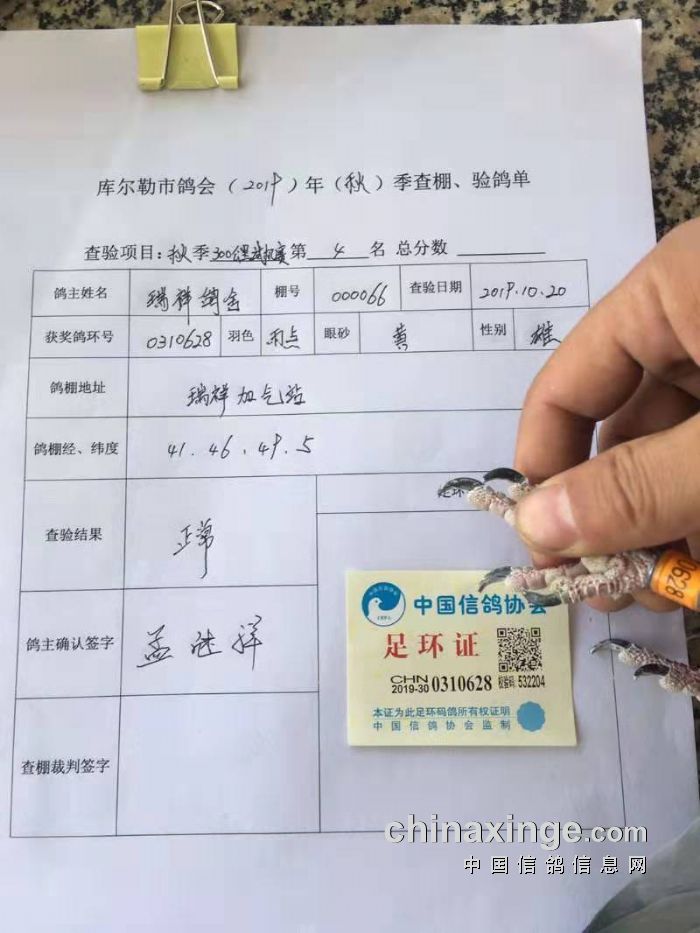 库尔勒市鸽会（2019）年（秋）季查棚、验鸽单
查验项目：秋季300公里 第 4 名 总分数
鸽主姓名 瑞祥鸽舍 棚号 000066 查验日期 2019.10.20
获奖鸽环号 0310628 羽色 雨点 眼砂 黄 性别 雄
鸽棚地址 瑞祥加气站
鸽棚经、纬度 41.46.49.5
足环
查验结果 正常
鸽主确认签字 孟 祥
查棚裁判签字
中国信鸽协会
足环证
CHN
2019-30 0310628 校验码: 532204
本证为此足环码鸽所有权证明
中国信鸽协会监制
0628
chinaxinge.com
中国信鸽信息网